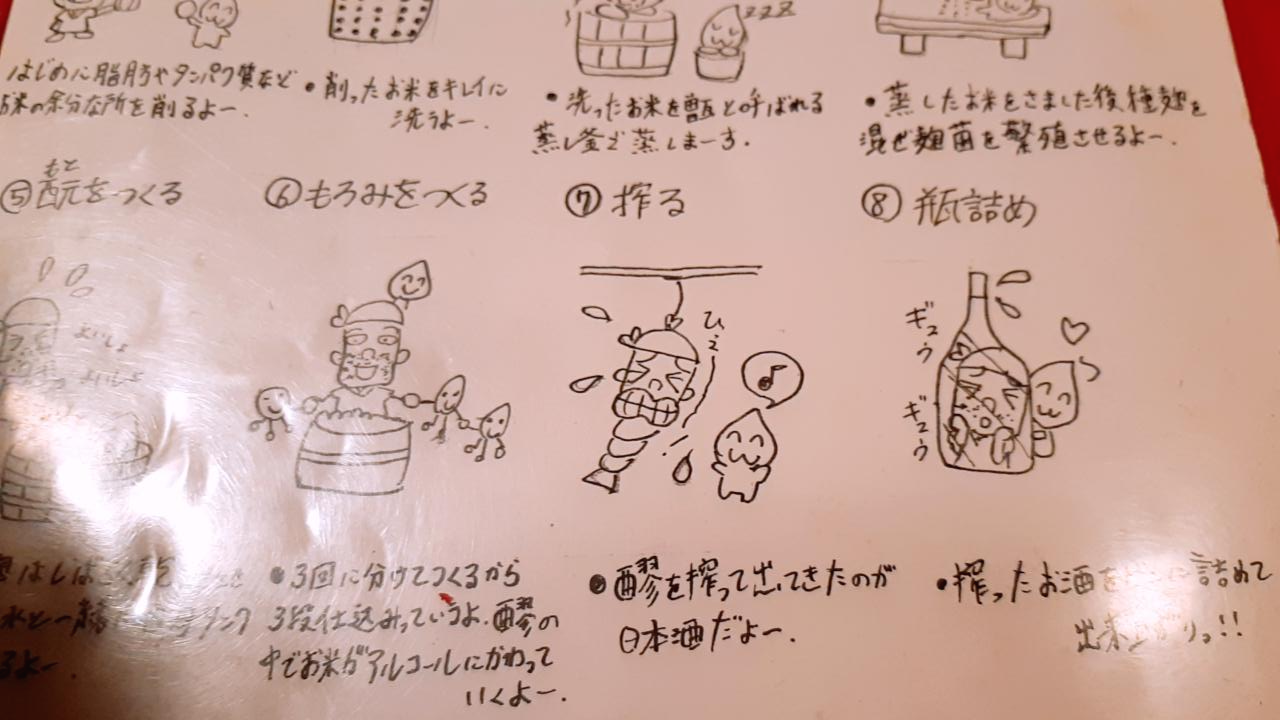 zzz
はじめに脂肪やタンパク質など
お米の余分な所を削るよー.
・削ったお米をキレイに
洗うよー.
・洗ったお米を甑と呼ばれる
蒸し釜で蒸しまーす.
・蒸したお米をさました後、種麹を
混ぜ麹菌を繁殖させるよー.
もと
⑤酛をつくる
⑥もろみをつくる
⑦搾る
⑧瓶詰め
よいしょ
よいしょ
ひぇ
ギュウ
ギュウ
水と一
るよー.
・3回に分けてつくるから
3段仕込みっていうよ.醪の
中でお米がアルコールにかわって
いくよー.
・醪を搾って出てきたのが
日本酒だよー.
・搾ったお酒を 詰めて
出来上がりっ!!